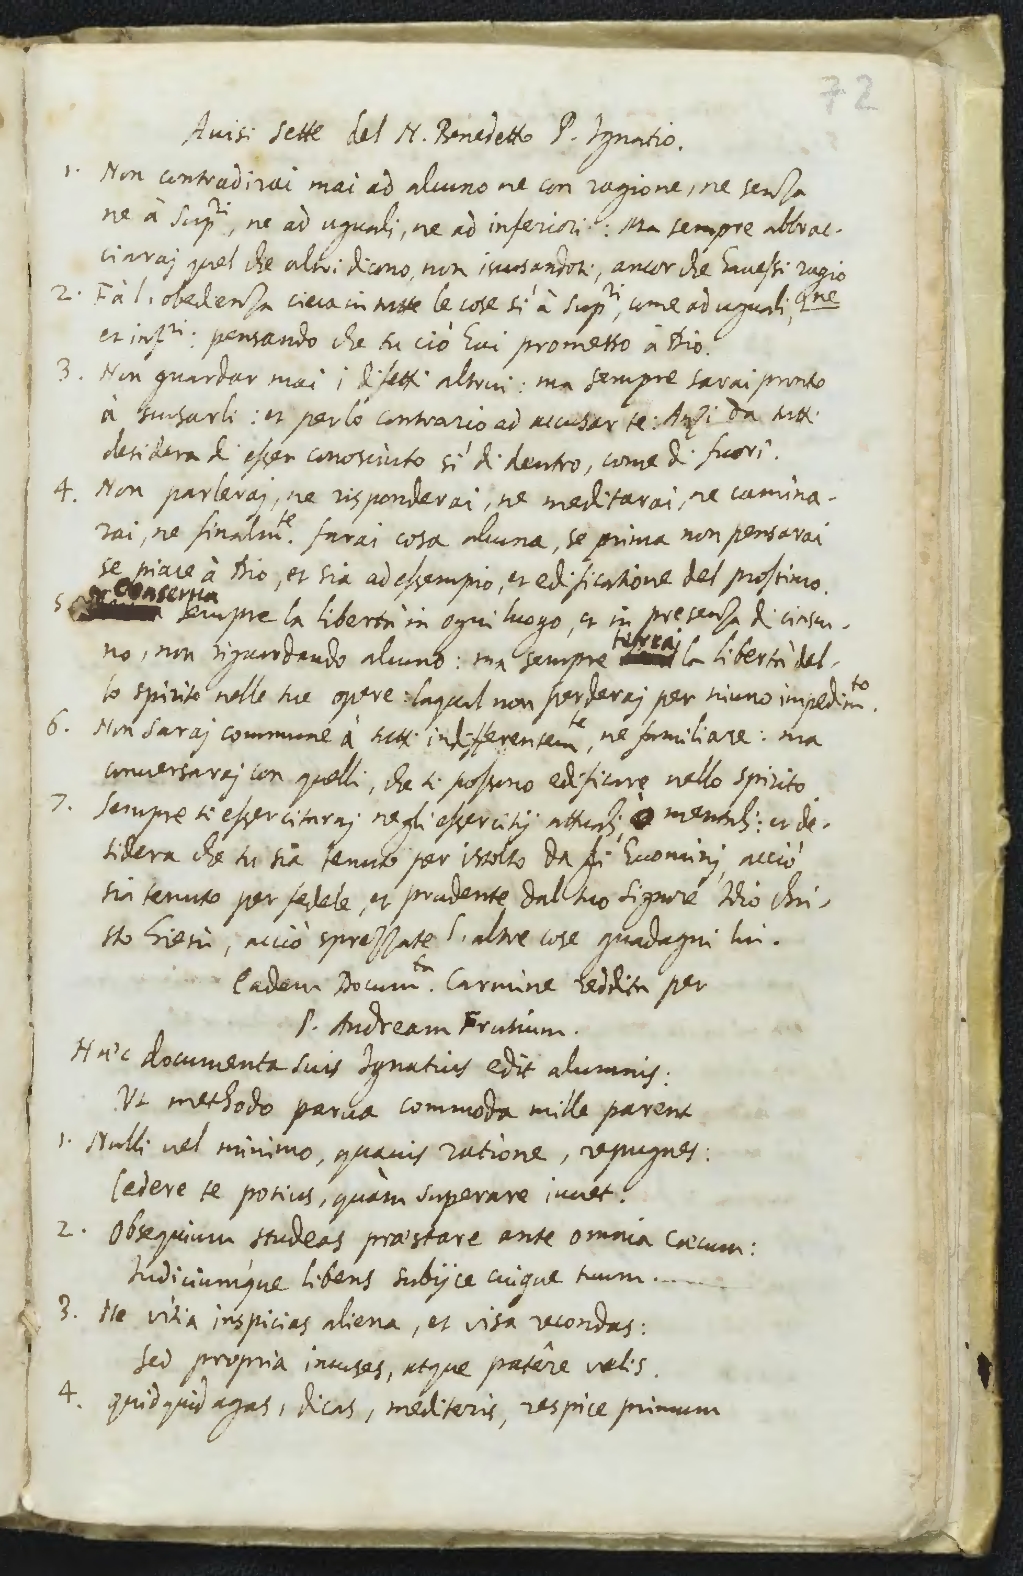 72
Avisi sette del N. Benedetto P. Ignatio.
1. Non contradirai mai ad alcuno ne con ragione, ne senza
ne à Sup.ri, ne ad uguali, ne ad inferiori: Ma sempre abbrac-
ciaraj quel che altri dicono, non iscusandoti, ancor che havessi ragio
ne
2. Fà l'obedienza cieca in tutte le cose sì à Sup.ri, come ad uguali,
et inf.ri: pensando che tu ciò hai promesso à Dio.
3. Non guardar mai i difetti altrui: ma sempre sarai pronto
à scusarli: et per lo contrario ad accusar te: Anzi da tutti
desidera di esser conosciuto sì di dentro, come di fuori.
4. Non parleraj, ne risponderai, ne meditarai, ne camina-
rai, ne finalm.te farai cosa alcuna, se prima non pensarai
se piace à Dio, et sia ad essempio, et edificatione del prossimo.
5. Conserva sempre la libertà in ogni luogo, et in presenza di ciascu-
no, non riguardando alcuno: ma sempre terraj la libertà del-
lo spirito nelle tue opere: laqual non perderaj per niuno impedim.to.
6. Non saraj commune à tutti indifferentem.te, ne familiare: ma
conversaraj con quelli, che ti possono edificare nello spirito
7. Sempre ti essercitaraj negli essercitij attuali, ò mentali: et de-
sidera che tu sia tenuto per istolto da gli huomini, acciò
sia tenuto per fedele, et prudente dal tuo Signore Idio Chri-
sto Giesù, acciò sprezzate l'altre cose guadagni lui.
Eadem Docum.ta Carmine reddita per
P. Andream Frusium.
Haec documenta suis Ignatius edit alumnis:
Ut methodo parva commoda mille parent
1. Nulli vel minimo, quavis ratione, repugnes:
Cedere te potius, quàm superare iuvet.
2. Obsequium studeas praestare ante omnia caecum:
Iudiciumque libens subijce cuique tuum.
3. Ne vitia inspicias aliena, et visa recondas:
Sed propria incuses, atque patêre velis.
4. quidquid agas, dicas, mediteris, respice primum